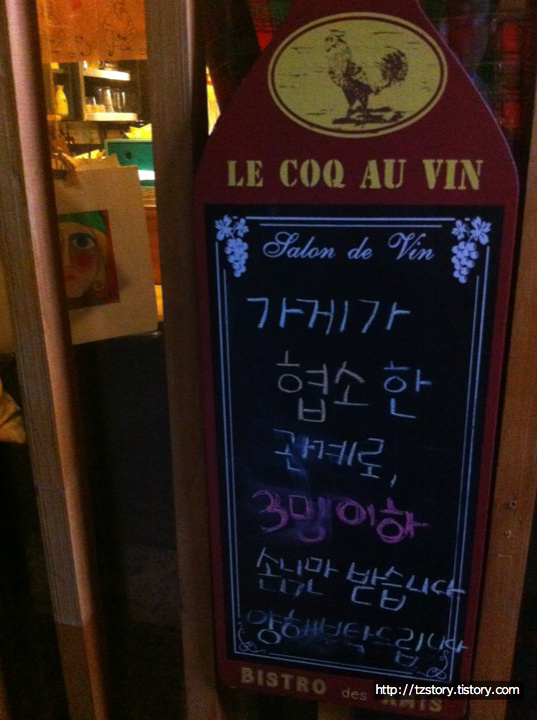 LE COQ AU VIN
Salon de Vin
가게가
협소한
관계로,
3명 이하
손님만 받습니다
양해부탁드립니다
BISTRO des AMIS
http://tzstory.tistory.com